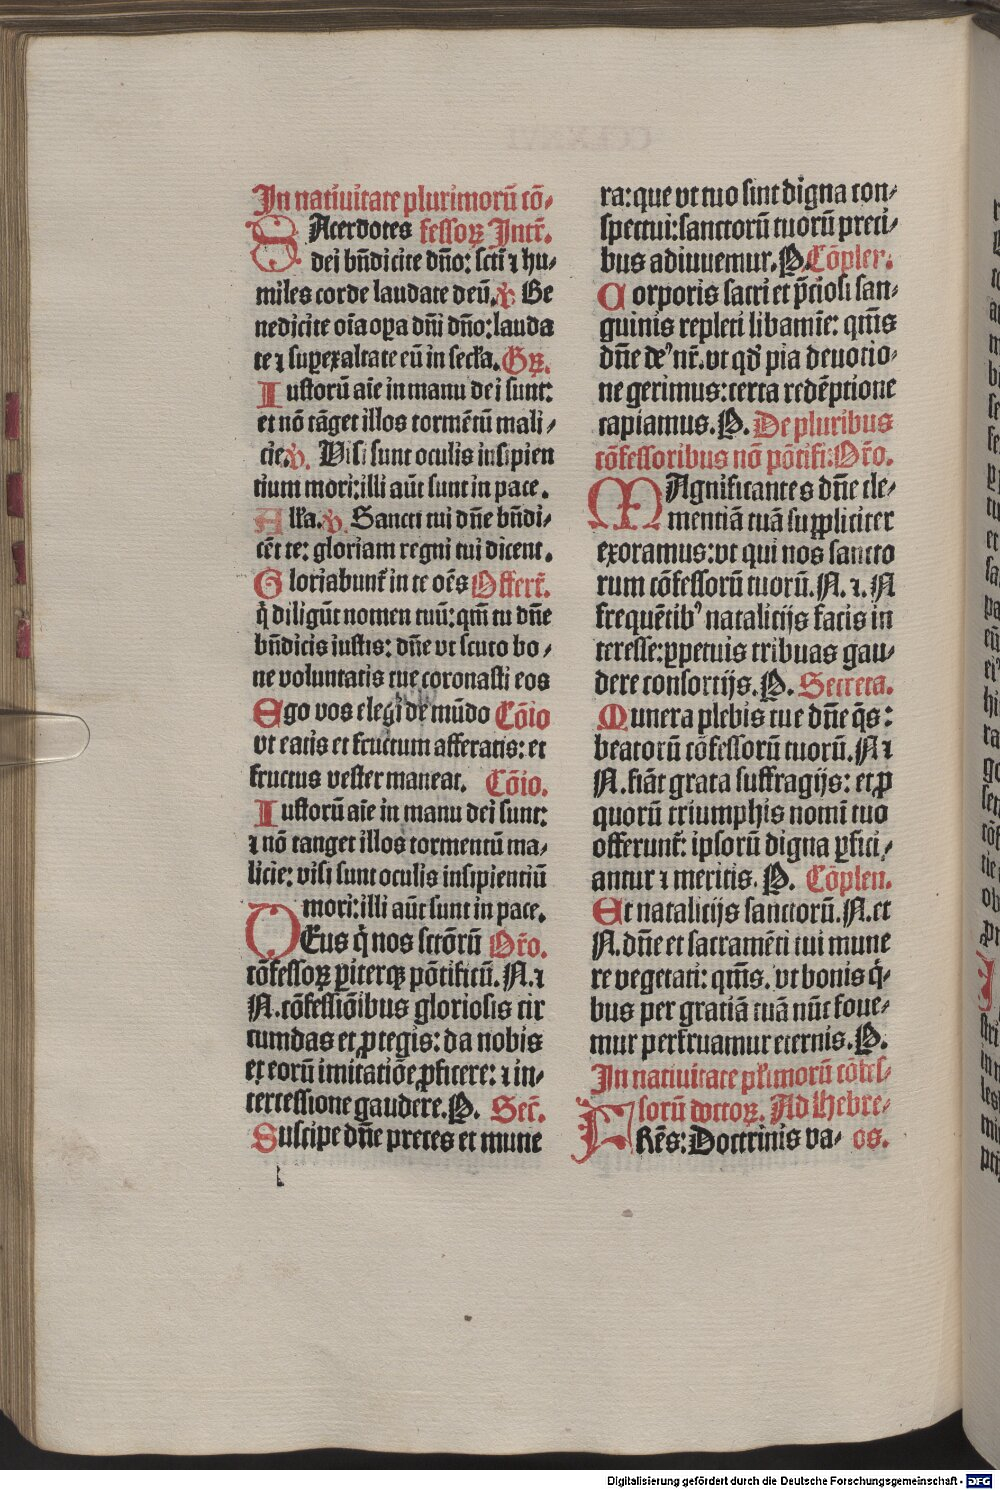 In natiuitate plurimorū cō⸗
SAcerdotes fessoꝝ Intr̄.
dei bn̄dicite dn̄o: scti ⁊ hu⸗
miles corde laudate deū. ℣. Be
nedicite oīa oꝑa dn̄i dn̄o: lauda
te ⁊ suꝑexaltate eū in secl'a. Gꝝ.
Iustorū aīe in manu dei sunt:
et nō tāget illos tormētū mali⸗
cie. ℣. Visi sunt oculis insipien
tium mori: illi aūt sunt in pace.
All'a. ℣. Sancti tui dn̄e bn̄di⸗
cēt te: gloriam regni tui dicent.
Gloriabunt᷑ in te oēs Offert̄.
q̇ diligūt nomen tuū: qm̄ tu dn̄e
bn̄dicis iustis: dn̄e vt scuto bo⸗
ne voluntatis tue coronasti eos
Ego vos elegi de mūdo Cōio
vt eatis et fructum afferatis: et
fructus vester maneat. Cōio.
Iustorū aīe in manu dei sunt:
⁊ nō tanget illos tormentū ma⸗
licie: visi sunt oculis insipientiū
mori: illi aūt sunt in pace.
DEus q̇ nos sctōrū Or̄o.
cōfessoꝝ ꝑiterqꝫ pōtificū. N. ⁊
N. cōfessiōibus gloriosis cir
cumdas et ꝓtegis: da nobis
ex eorū imitatiōe ꝓficere: ⁊ in⸗
tercessione gaudere. P. Sec̄.
Suscipe dn̄e preces et mune
ra: que vt tuo sint digna con⸗
spectui: sanctorū tuorū preci⸗
bus adiuuemur. P. Cōpler.
Corporis sacri et p̄ciosi san⸗
guinis repleti libamīe: qm̄s
dn̄e de⁹ nr̄. vt qd̓ pia deuotio⸗
ne gerimus: certa redēptione
capiamus. P. De pluribus
cōfessoribus nō pōtifi: Or̄o.
MAgnificantes dn̄e cle⸗
mentiā tuā supꝑliciter
exoramus: vt qui nos sancto
rum cōfessorū tuorū. N. ⁊. N
frequētib⁹ natalicijs facis in
teresse: ꝑpetuis tribuas gau⸗
dere consortijs. P. Secreta.
Munera plebis tue dn̄e q̄s:
beatorū cōfessorū tuorū. N ⁊
N. fiāt grata suffragijs: et ꝓ
quorū triumphis nomī tuo
offerunt᷑: ipsorū digna ꝑfici⸗
antur ⁊ meritis. P. Cōplen.
Et natalicijs sanctorū. N. et
N. dn̄e et sacramēti tui mune
re vegetati: qm̄s. vt bonis q̇⸗
bus per gratiā tuā nūc foue⸗
mur perfruamur eternis. P.
In natiuitate pl'imorū cōfes⸗
sorū doctoꝝ. Ad Hebre⸗
FRēs: Doctrinis va⸗ os.
Digitalisierung gefördert durch die Deutsche Forschungsgemeinschaft - DFG